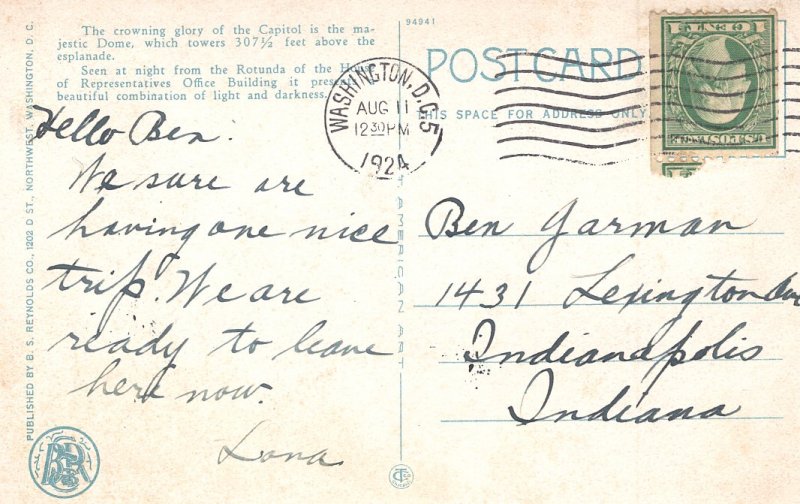 The crowning glory of the Capitol is the ma-
jestic Dome, which towers 307½ feet above the
esplanade.
Seen at night from the Rotunda of the
of Representatives Office Building it
beautiful combination of light and darkness.
Hello Ben:
We sure are
having one nice
trip. We are
ready to leave
here now.
Lona
PUBLISHED BY B. S. REYNOLDS CO., 1202 D ST., NORTHWEST, WASHINGTON, D. C.
BSR
94941
POST CARD
THIS SPACE FOR ADDRESS ONLY
WASHINGTON, D.C. 5
AUG 11
12 30 PM
1924
Ben Yarman
1431 Lexington Ave
Indianapolis
Indiana
AMERICAN ART